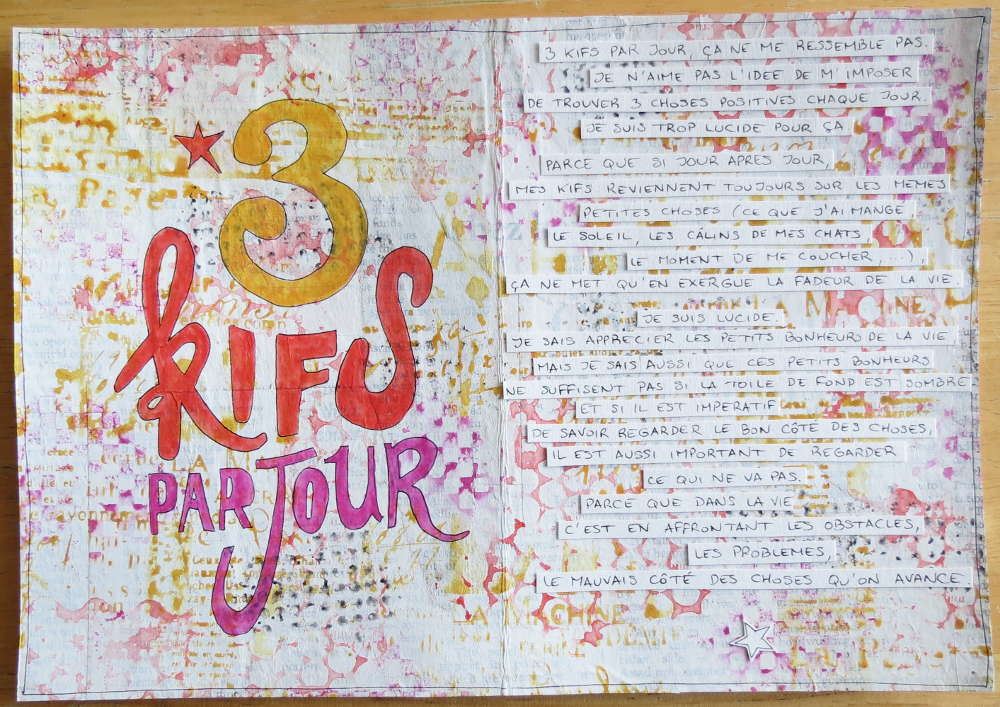 3
KIFS
PAR JOUR
3 KIFS PAR JOUR, ÇA NE ME RESSEMBLE PAS.
JE N'AIME PAS L'IDEE DE M'IMPOSER
DE TROUVER 3 CHOSES POSITIVES CHAQUE JOUR.
JE SUIS TROP LUCIDE POUR ÇA
PARCE QUE SI JOUR APRES JOUR,
MES KIFS REVIENNENT TOUJOURS SUR LES MEMES
PETITES CHOSES (CE QUE J'AI MANGE
LE SOLEIL, LES CÂLINS DE MES CHATS,
LE MOMENT DE ME COUCHER, ...),
ÇA NE MET QU'EN EXERGUE LA FADEUR DE LA VIE.
MACHINE
JE SUIS LUCIDE.
JE SAIS APPRECIER LES PETITS BONHEURS DE LA VIE
MAIS JE SAIS AUSSI QUE CES PETITS BONHEURS
NE SUFFISENT PAS SI LA TOILE DE FOND EST SOMBRE
ET SI IL EST IMPERATIF
DE SAVOIR REGARDER LE BON CÔTÉ DES CHOSES,
IL EST AUSSI IMPORTANT DE REGARDER
CE QUI NE VA PAS.
PARCE QUE DANS LA VIE
C'EST EN AFFRONTANT LES OBSTACLES,
LES PROBLEMES,
LE MAUVAIS CÔTÉ DES CHOSES QU'ON AVANCE
LA MACHINE